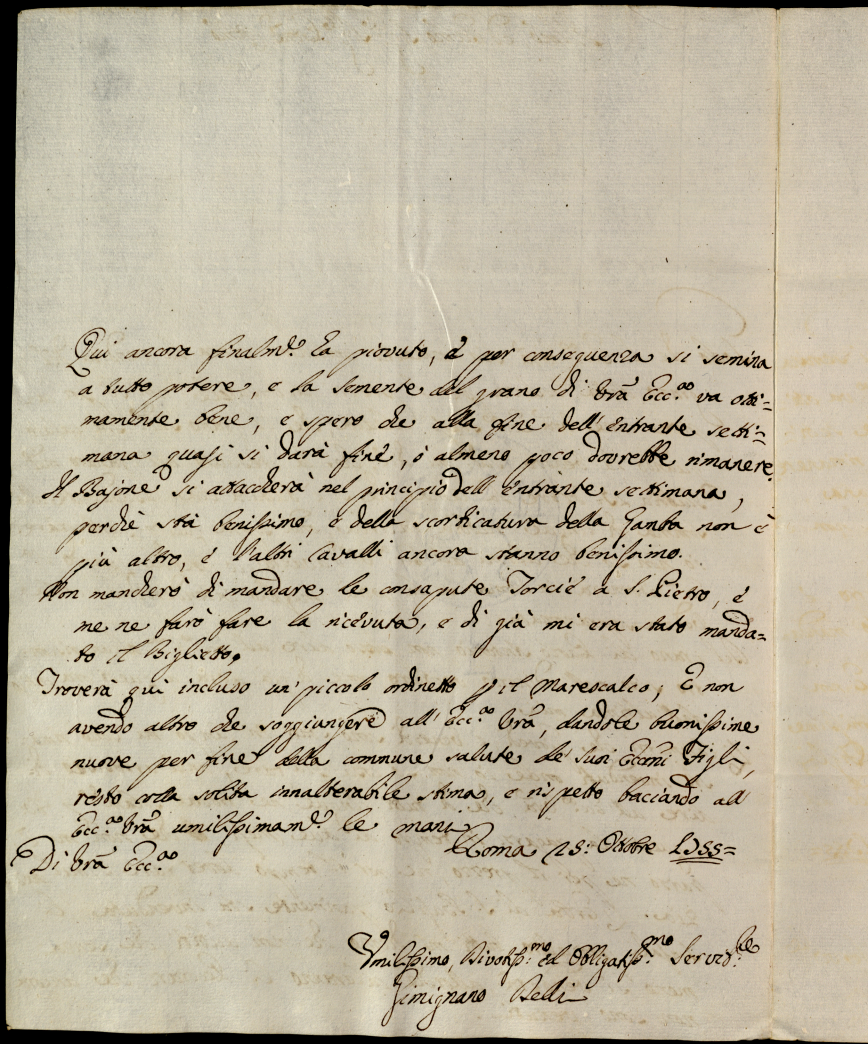 Qui ancora finalm.te ha piovuto, è per conseguenza si semina
a tutto potere, e la semente del grano di Vrã Ecc.za va otti=
mamente bene, e spero che alla fine dell'entrante setti=
mana quasi si darà fine, ò almeno poco dovrebbe rimanere.
Il Bajone si attaccherà nel principio dell'entrante settimana,
perchè stà benissimo, e della scorticatura della Gamba non è
più altro, e l'altri Cavalli ancora stanno benissimo.
Non mancherò di mandare le consapute Torcie a S. Pietro, è
me ne farò fare la ricevuta, e di già mi era stato manda=
to il Biglietto.
Troverà qui incluso un piccolo ordinetto p il Marescalco; E non
avendo altro che soggiungere all'Ecc.za Vrã, dandole buonissime
nuove per fine della commune salute de suoi Eccmi Figli,
resto colla solita innalterabile stima, e rispetto baciando all
Ecc.za Vrã umilissimam.te le mani
Roma 18: Ottobre 1755=
Di Vrã Ecc.za
Umilissimo, Divotiss.mo ed Obligatiss.mo Servid.le
Gimignano Belli